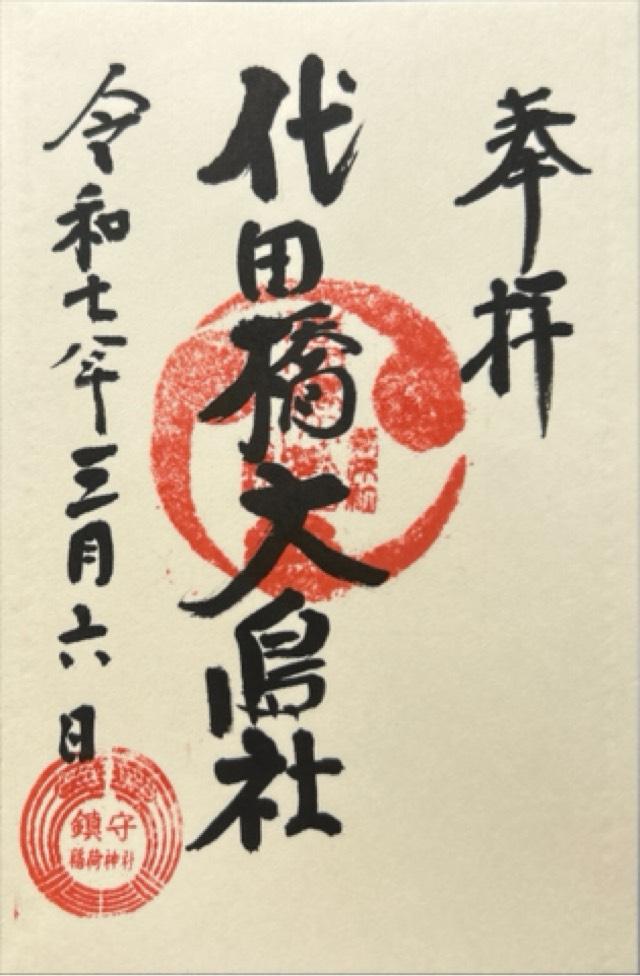 奉拝
代田橋大島社
令和七年三月六日
鎮守
稲荷神社